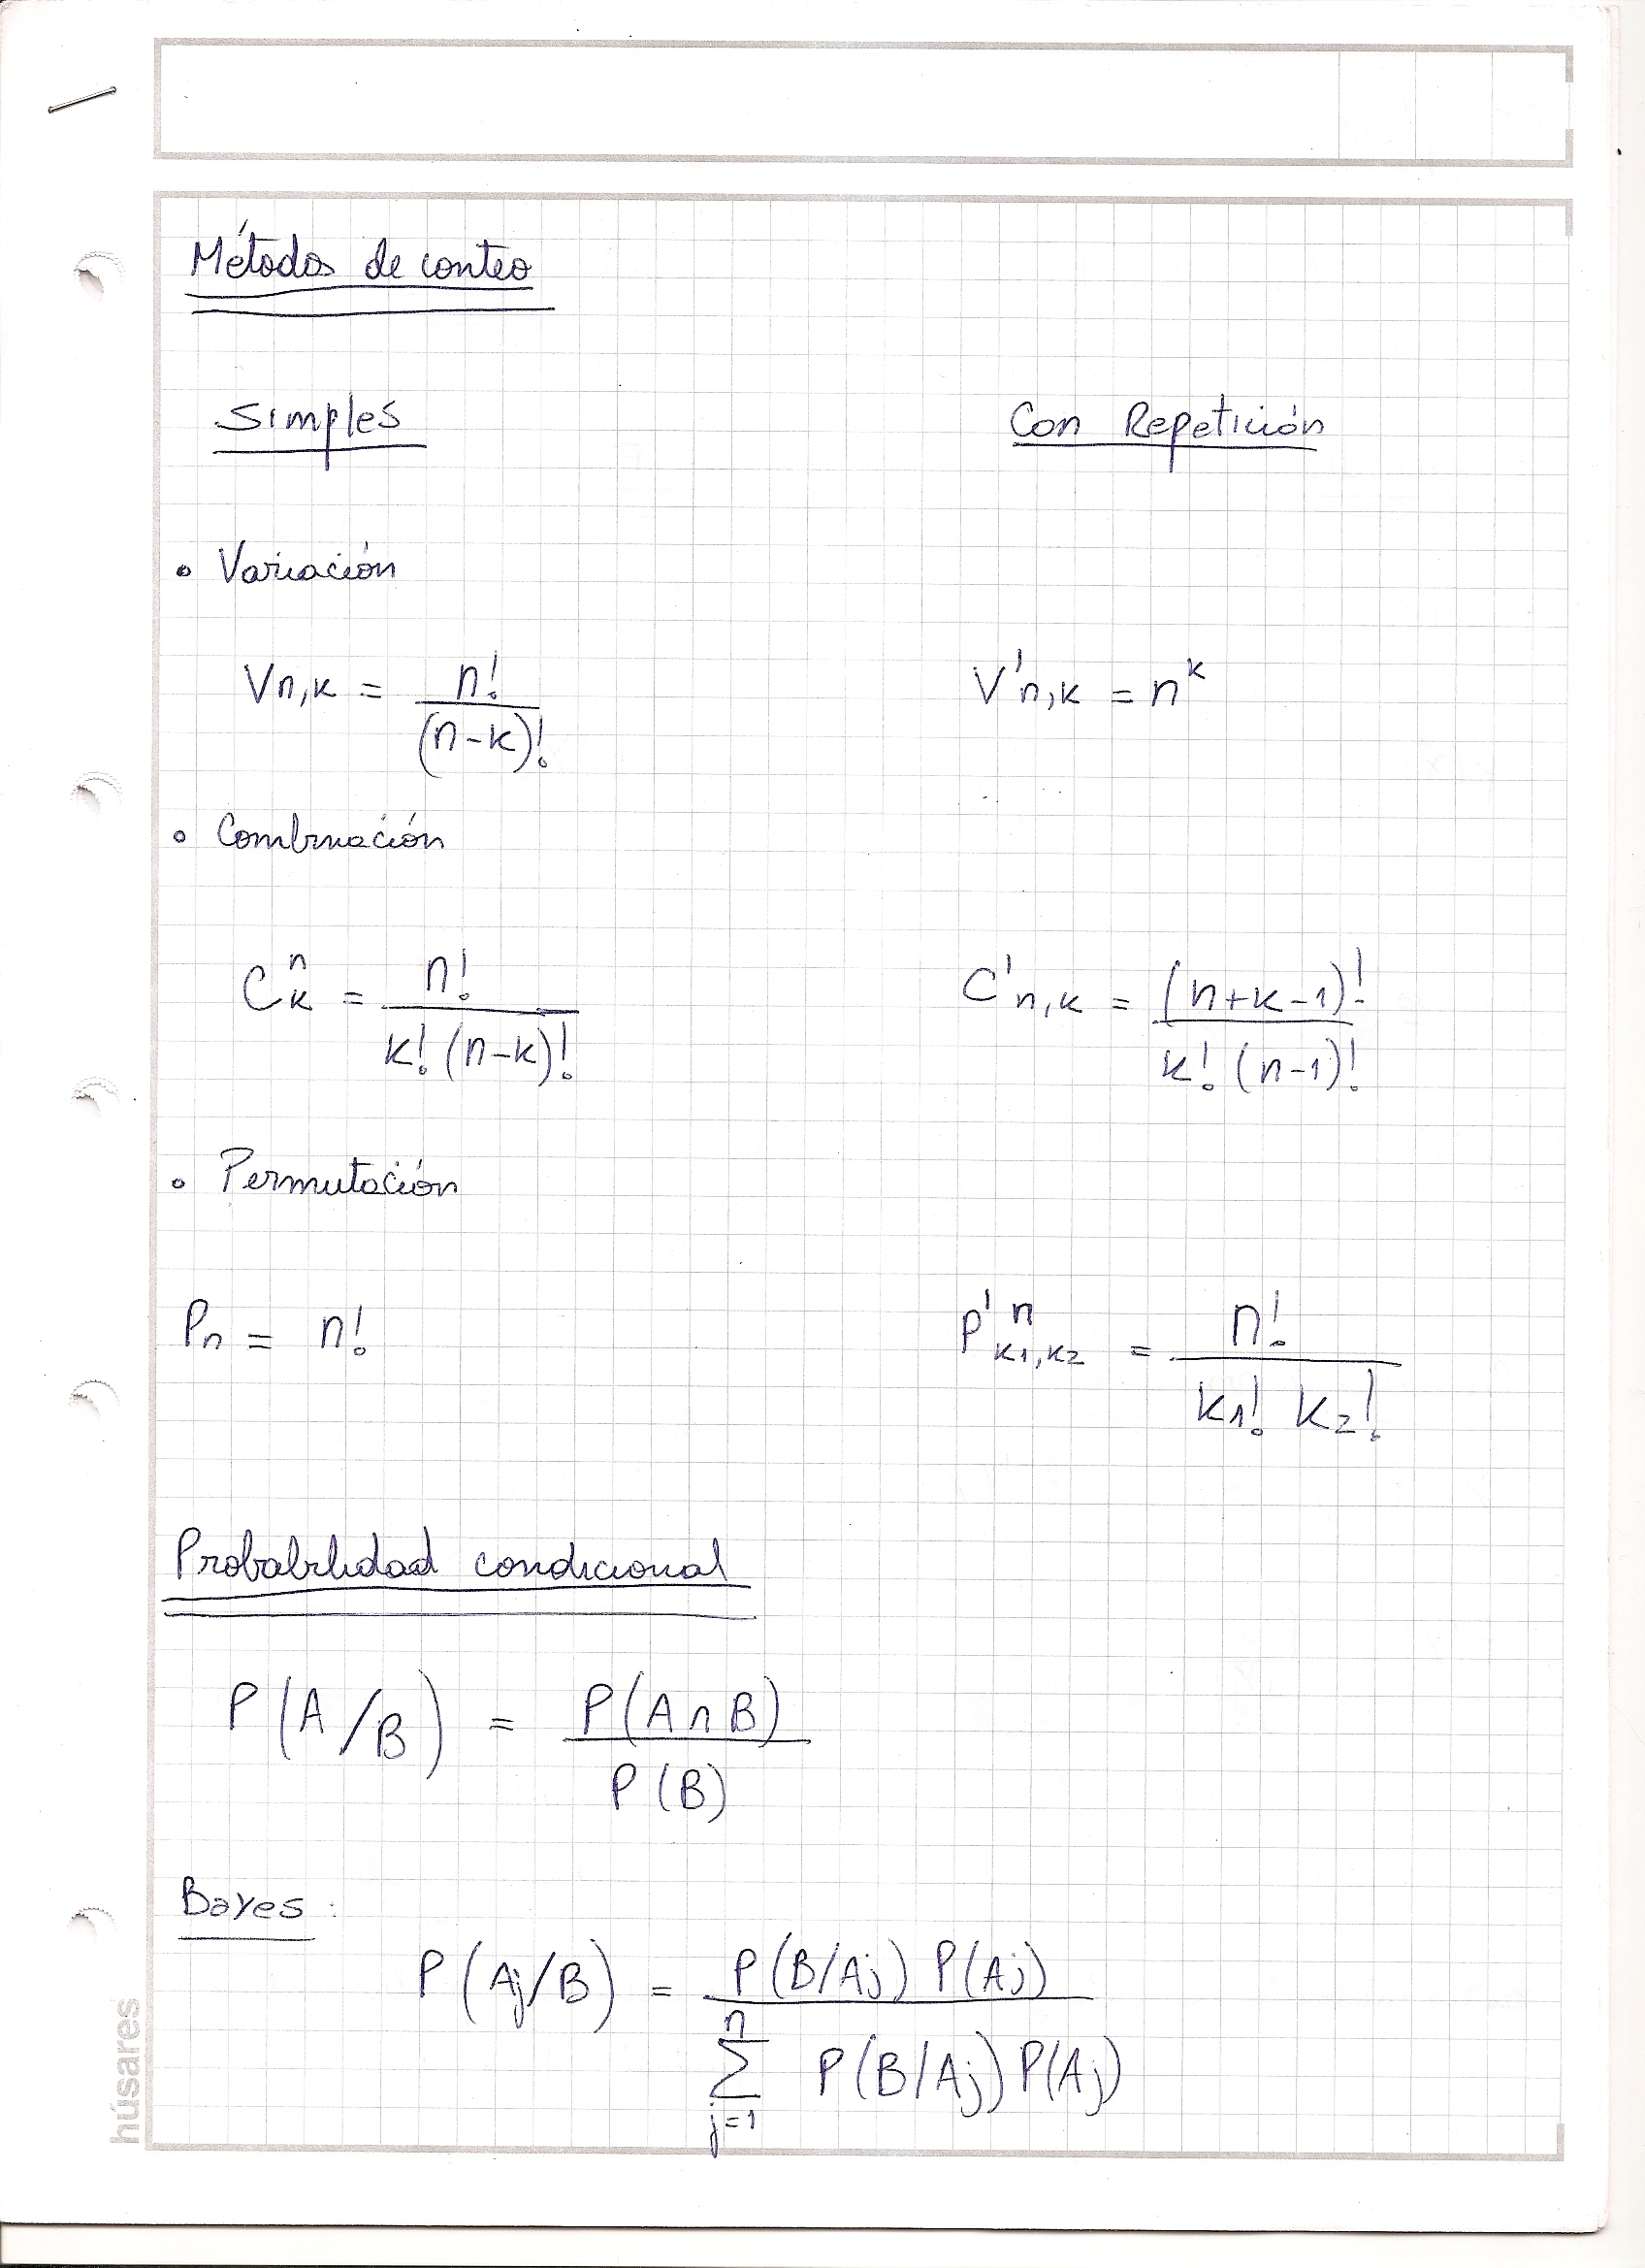 Métodos de conteo
Simples Con Repetición
• Variación
Vn,k = n! / (n-k)! V'n,k = n^k
• Combinación
C^n_k = n! / k! (n-k)! C'n,k = (n+k-1)! / k! (n-1)!
• Permutación
Pn = n! P'^n_k1,k2 = n! / k1! k2!
Probabilidad condicional
P(A/B) = P(A∩B) / P(B)
Bayes:
P(Aj/B) = P(B/Aj) P(Aj) / ∑_{j=1}^n P(B/Aj) P(Aj)
húsares